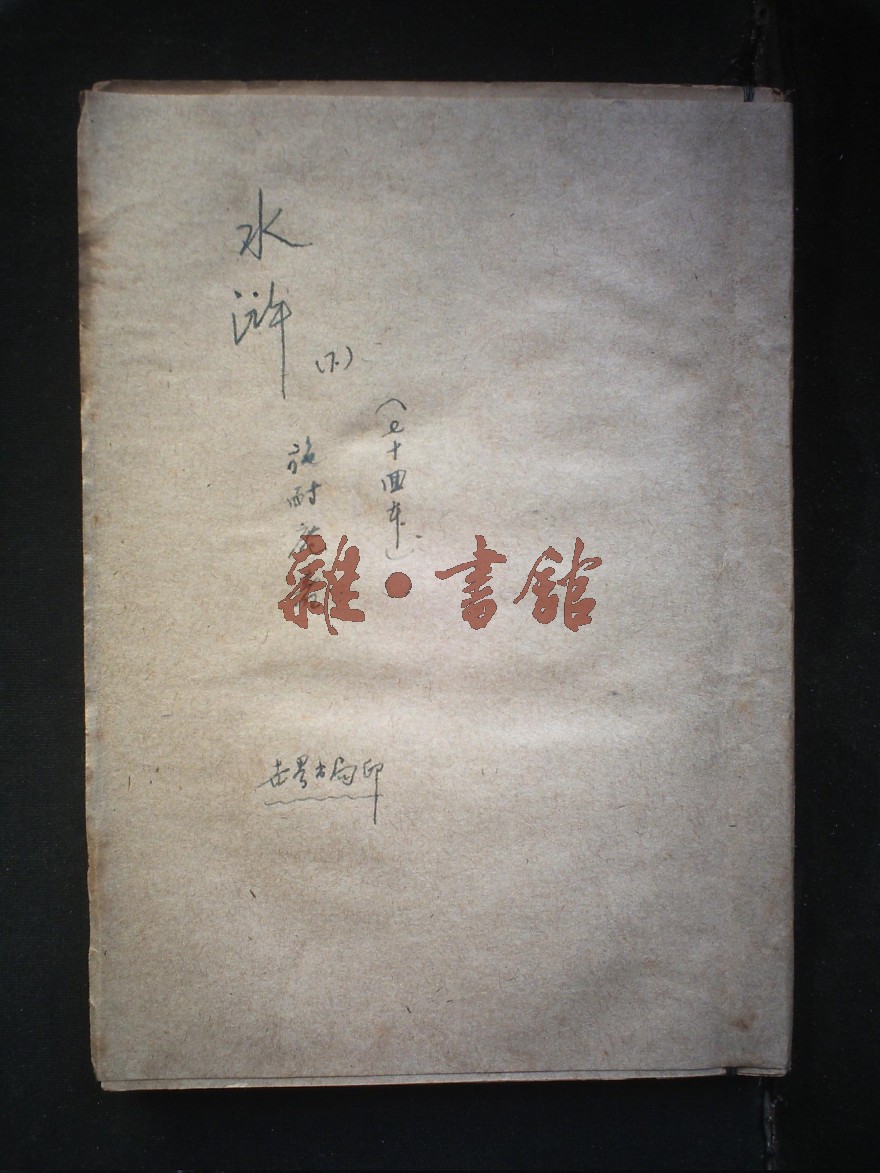 水浒
(下)
(七十回本)
施耐庵
雜·書館
世界书局印